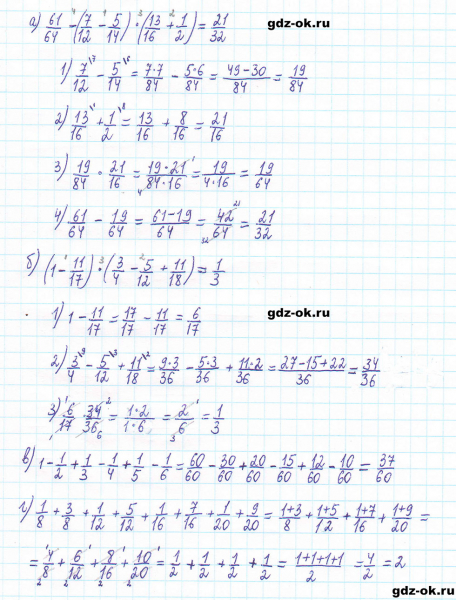 gdz-ok.ru
а) 61/64 - (7/12 - 5/14) · (13/16 + 1/2) = 21/32
1) 7/12 - 5/14 = 7·7/84 - 5·6/84 = 49-30/84 = 19/84
2) 13/16 + 1/2 = 13/16 + 8/16 = 21/16
gdz-ok.ru
3) 19/84 · 21/16 = 19·21/84·16 = 19/4·16 = 19/64
4) 61/64 - 19/64 = 61-19/64 = 42/64 = 21/32
б) (1 - 11/17) · (3/4 - 5/12 + 11/18) = 1/3
gdz-ok.ru
1) 1 - 11/17 = 17/17 - 11/17 = 6/17
2) 3/4 - 5/12 + 11/18 = 9·3/36 - 5·3/36 + 11·2/36 = 27-15+22/36 = 34/36
3) 6/17 · 34/36 = 1·2/1·6 = 2/6 = 1/3
gdz-ok.ru
в) 1 - 1/2 + 1/3 - 1/4 + 1/5 - 1/6 = 60/60 - 30/60 + 20/60 - 15/60 + 12/60 - 10/60 = 37/60
г) 1/8 + 3/8 + 1/12 + 5/12 + 1/16 + 7/16 + 1/20 + 9/20 = 1+3/8 + 1+5/12 + 1+7/16 + 1+9/20 =
= 4/8 + 6/12 + 8/16 + 10/20 = 1/2 + 1/2 + 1/2 + 1/2 = 1+1+1+1/2 = 4/2 = 2
gdz-ok.ru